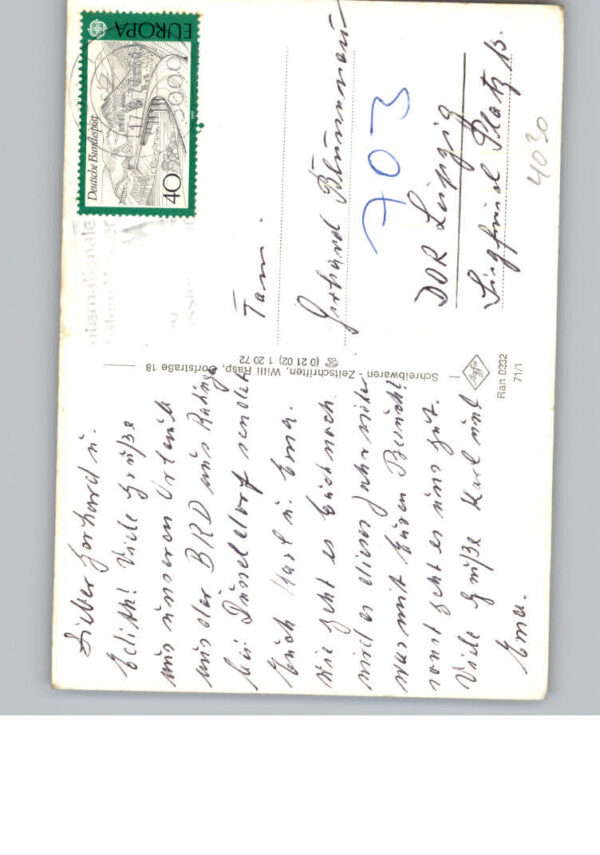 Lieber Gerhard u.
Edith! Viele Grüße
aus unseren Urlaub
aus der BRD aus Ratingen
bei Düsseldorf sendet
Euch Karl u. Erna.
Wie geht es Euch noch
wird es dieses Jahr wieder
was mit Euren Besuch?
sonst geht es uns gut.
Viele Grüße Karl und
Erna.
Schreibwaren - Zeitschriften, Willi Rasp, Dorfstraße 18
☏ (0 21 02) 1 20 72
Ran 0232
71/1
EUROPA
Deutsche Bundespost
40
Internationale
Fam.
Gerhard
703
DDR Leipzig
Siegfried Platz 13.
4030